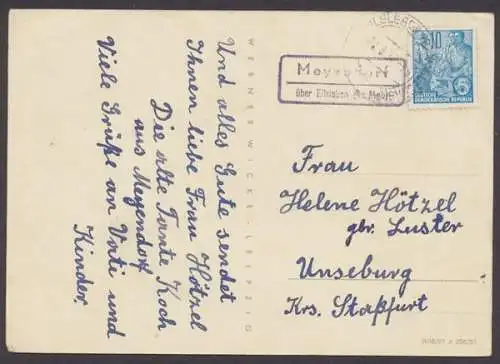 Und alles Gute sendet
Ihnen liebe Frau Hötzel
Die alte Tante Koch
aus Meyendorf
Viele Grüße an Vati und
Kinder.
WERNER WICKEL · LEIPZIG
Meyendorf
über
10
DEUTSCHE
DEMOKRATISCHE REPUBLIK
Frau
Helene Hötzel
gbr. Luster
Unseburg
Krs. Staßfurt